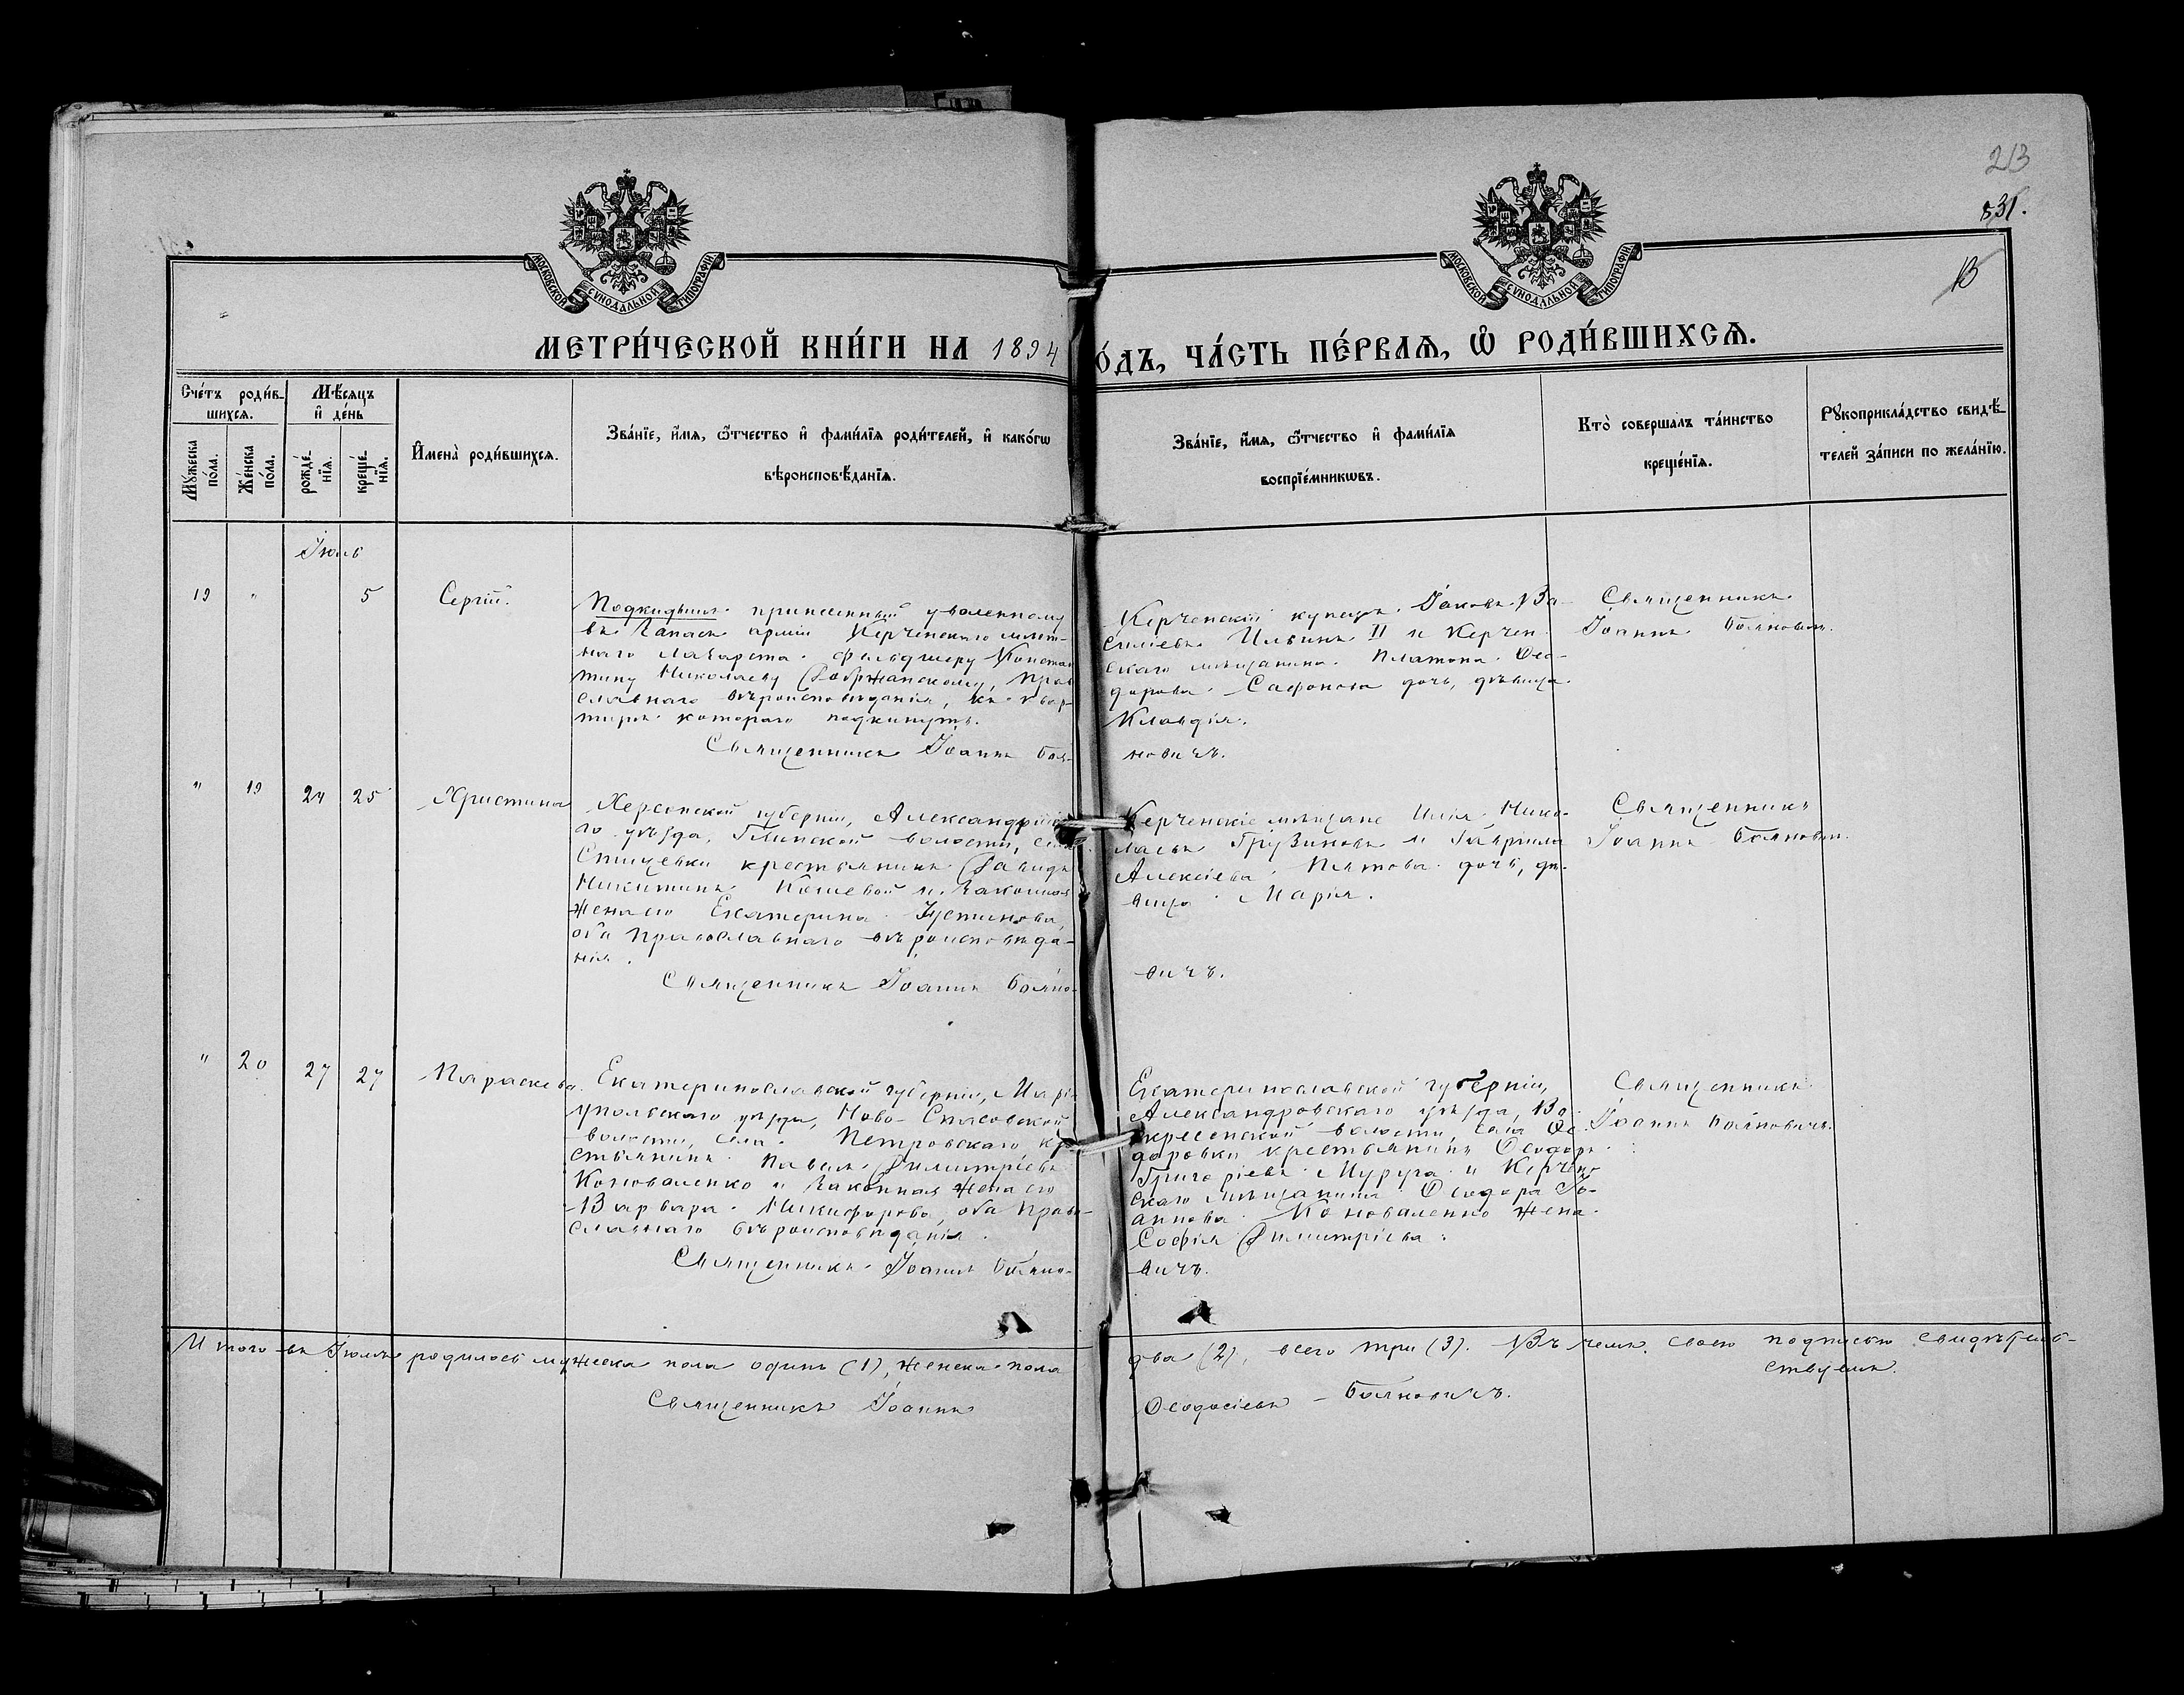 213
831.
МОСКОВСКОЙ СѴНОДАЛЬНОЙ ТИПОГРАФІИ
МОСКОВСКОЙ СѴНОДАЛЬНОЙ ТИПОГРАФІИ
МЕТРИ́ЧЕСКОЙ КНИ́ГИ НА 1894
ОДЪ, ЧА́СТЬ ПЕ́РВАЯ, Ѽ РОДИ́ВШИХСЯ.
Сче́тъ роди́в-
шихся.
Мѣ́сяцъ
и де́нь
Мꙋ́жеска
по́ла.
Же́нска
по́ла.
рожде́-
нїя.
креще́-
нїя.
Имена̀ роди́вшихся.
Зва́нїе, и́мя, ѻ́тчество и фами́лїя роди́телей, и како́гѡ
вѣроисповѣ́данїя.
Зва́нїе, и́мя, ѻ́тчество и фами́лїя
воспрїе́мникѡвъ.
Кто̀ соверша́лъ та́инство
креще́нїя.
Рꙋкоприкла́дство свидѣ́-
телей за́писи по жела́нїю.
Іюль
19 " 5 Сергій.
Подкидышъ принесенный уволенному
въ запасъ арміи Керченскаго мѣст-
наго лазарета фельдшеру Констан
тину Николаеву Добржанскому, прав
славнаго вѣроисповѣданія, къ квар-
тирѣ котораго подкинутъ.
Священникъ Іоаннъ Боя-
Керченскій купецъ Іаковъ Ва-
силіевъ Ильинъ II и Керчен-
скаго мѣщанина Платона Ѳео-
дорова Сафонова дочь, дѣвица
Клавдія.
новичъ.
Священникъ
Іоаннъ Бояновичъ.
" 19 24 25 Христина
Херсонской губерніи, Александрій
го уѣзда, Глинской волости, села
Спицевки крестьянинъ Давидъ
Никитинъ Кошевой и законная
жена его Екатерина Устинова,
оба православнаго вѣроисповѣда-
нія.
Священникъ Іоаннъ Бояно-
Керченскіе мѣщане Илія Нико-
лаевъ Грузиновъ и Гавріила
Алексіева Пятова дочь, дѣ-
вица Марія.
вичъ.
Священникъ
Іоаннъ Бояновичъ.
" 20 27 27 Параскева.
Екатеринославской губерніи, Марі
упольскаго уѣзда, Ново-Спасовской
волости, села Петровскаго кре
стьянинъ Павелъ Димитріевъ
Коноваленко и законная жена его
Варвара Никифорова, оба право-
славнаго вѣроисповѣданія.
Священникъ Іоаннъ Бояно-
Екатеринославской губерніи,
Александровскаго уѣзда, Во-
скресенской волости, села Ѳе-
доровки крестьянинъ Ѳеодоръ
Григоріевъ Муруга и Керчен
скаго мѣщанина Ѳеодора Іо-
аннова Коноваленко жена
Софія Димитріева.
вичъ.
Священникъ
Іоаннъ Бояновичъ.
Итого въ Іюлѣ родилось мужеска пола одинъ (1), женска пола
два (2), всего три (3). Въ чемъ своею подписью свидѣтель-
ствуемъ.
Священникъ Іоаннъ
Ѳеодосіевъ - Бояновичъ.